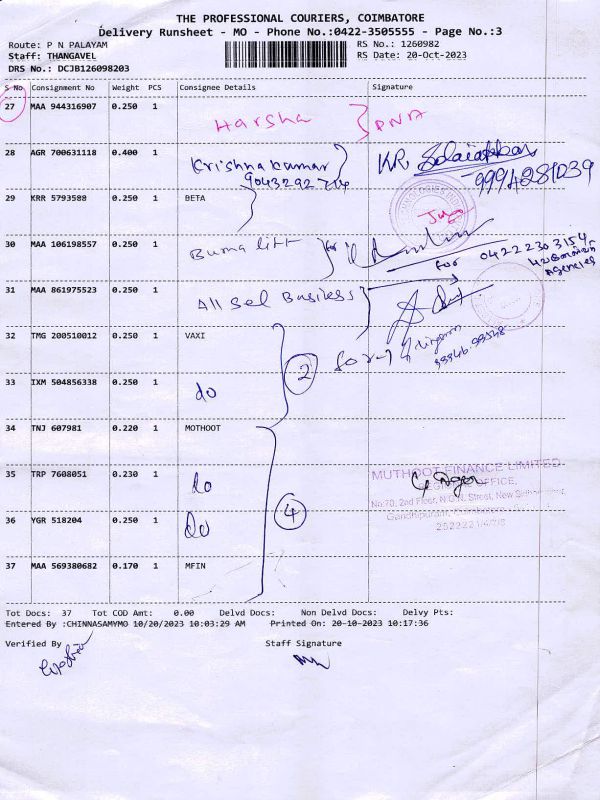 THE PROFESSIONAL COURIERS, COIMBATORE
Delivery Runsheet - MO - Phone No.:0422-3505555 - Page No.:3
Route: P N PALAYAM
RS No.: 1260982
Staff: THANGAVEL
RS Date: 20-Oct-2023
DRS No.: DCJB126098203
S No Consignment No Weight PCS Consignee Details Signature
27 MAA 944316907 0.250 1
Harsha PNA
28 AGR 700631118 0.400 1
Krishna kumar KR
9043292714 9994281039
29 KRR 5793588 0.250 1 BETA
30 MAA 106198557 0.250 1
Buma lift for 04222303154
for Agencies
31 MAA 861975523 0.250 1
All Sel Business
32 TMG 200510012 0.250 1 VAXI
2 for
33 IXM 504856338 0.250 1
do
34 TNJ 607981 0.220 1 MOTHOOT
35 TRP 7608051 0.230 1
MUTHOOT FINANCE LIMITED
do OFFICE,
No:70, 2nd Floor, Street, New
36 YGR 518204 0.250 1
do 4
Gandhipuram, Coimbatore
37 MAA 569380682 0.170 1 MFIN
Tot Docs: 37 Tot COD Amt: 0.00 Delvd Docs: Non Delvd Docs: Delvy Pts:
Entered By :CHINNASAMYMO 10/20/2023 10:03:29 AM Printed On: 20-10-2023 10:17:36
Verified By Staff Signature